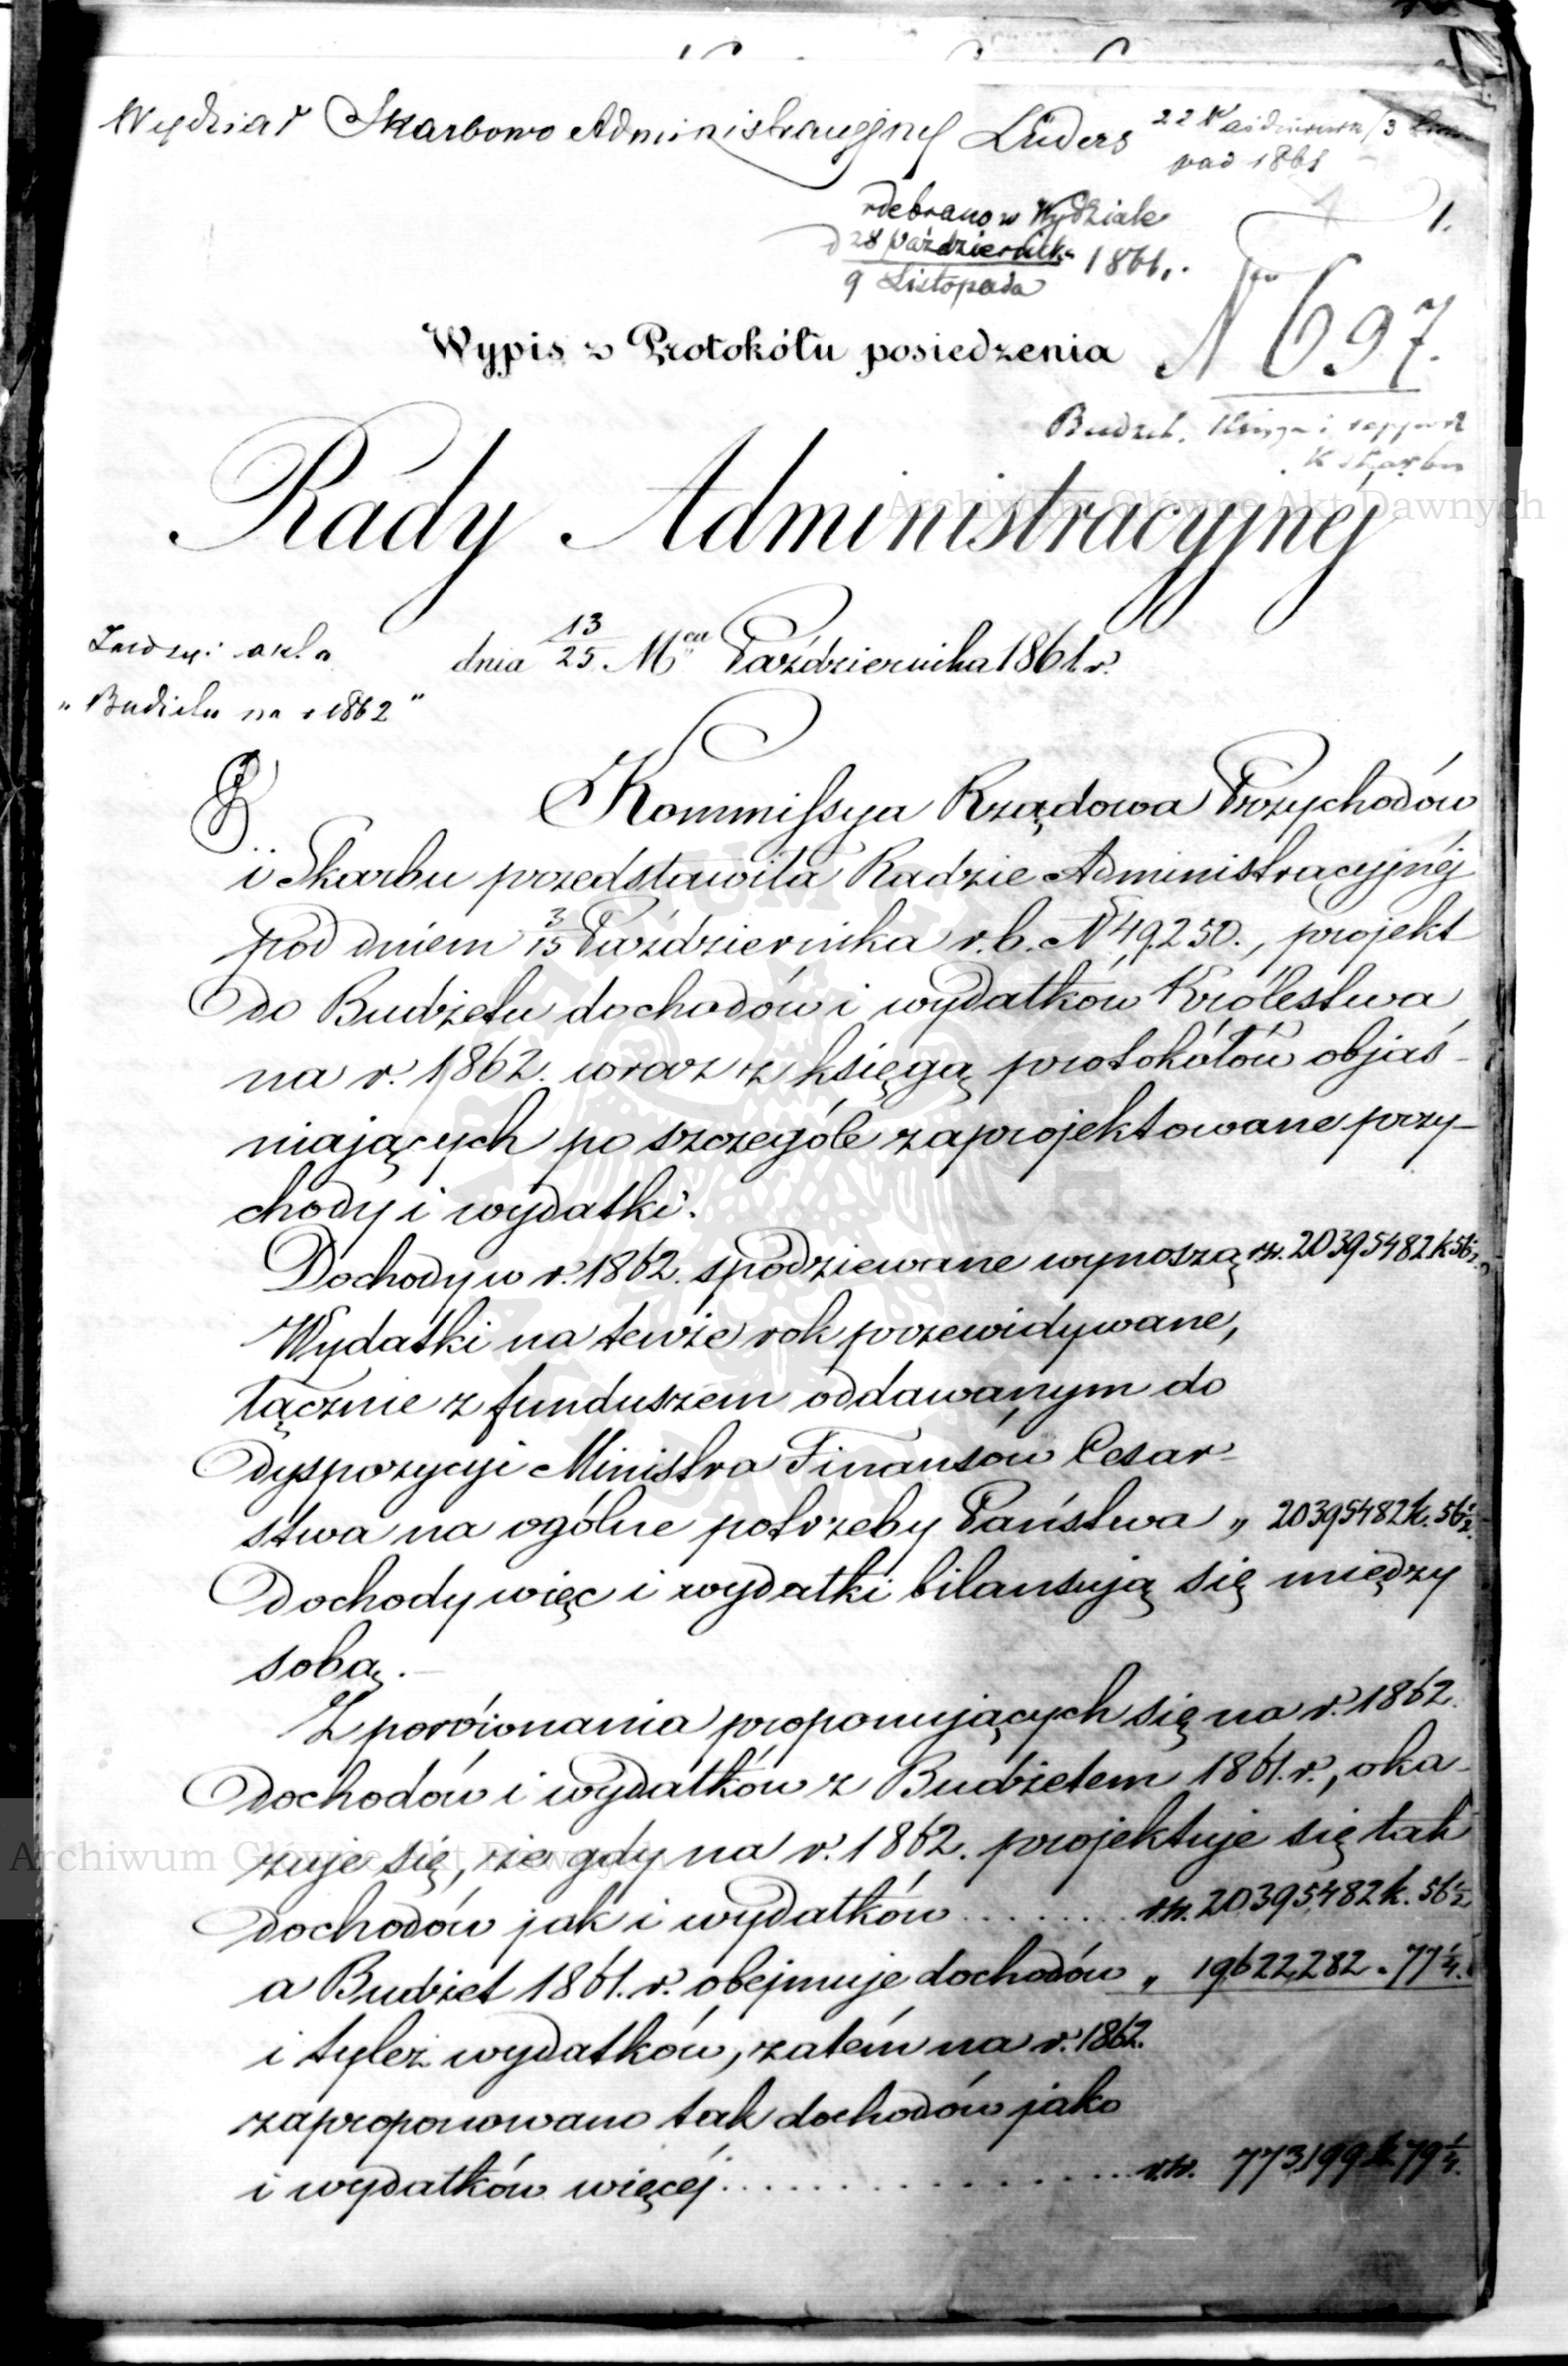 Wydział Skarbowo Administracyjny Lüders 22 Października/3
pad 1861
odebrano w Wydziale
d 28 Października 1861.
9 Listopada
1.
N 697.
Wypis z Protokółu posiedzenia
Budżet. Księga i rapport
K Skarbu
Rady Administracyjnéj
dnia 13/25 Mca Października 1861 r.
akta
"Budżetu na r 1862"
Kommissya Rządowa Przychodów
i Skarbu przedstawiła Radzie Administracyjnéj
pod dniem 3/15 Października r.b. N 49,250., projekt
do Budżetu dochodów i wydatków Królestwa
na r. 1862. wraz z księgą protokółów objaś-
niających po szczególe zaprojektowane przy-
chody i wydatki.
Dochody w r. 1862. spodziewane wynoszą rs. 20395482 k 56½.
Wydatki na tenże rok przewidywane,
łącznie z funduszem oddawanym do
dyspozycyi Ministra Finansów Cesar-
stwa na ogólne potrzeby Państwa „ 20395482 k. 56½.
Dochody więc i wydatki bilansują się między
sobą.
Z porównania proponujących się na r. 1862.
dochodów i wydatków z Budżetem 1861. r., oka-
zuje się, że gdy na r. 1862. projektuje się tak
dochodów jak i wydatków . . . . . . . rs. 20395,482 k. 56½
a Budżet 1861. r. obejmuje dochodów „ 19,622,282 „ 77¼.
i tyleż wydatków, zatém na r. 1862.
zaproponowano tak dochodów jako
i wydatków więcéj . . . . . . . . . . . . . rs. 773,199 k 79¼.
Archiwum Główne Akt Dawnych
Archiwum Główne Akt Dawnych